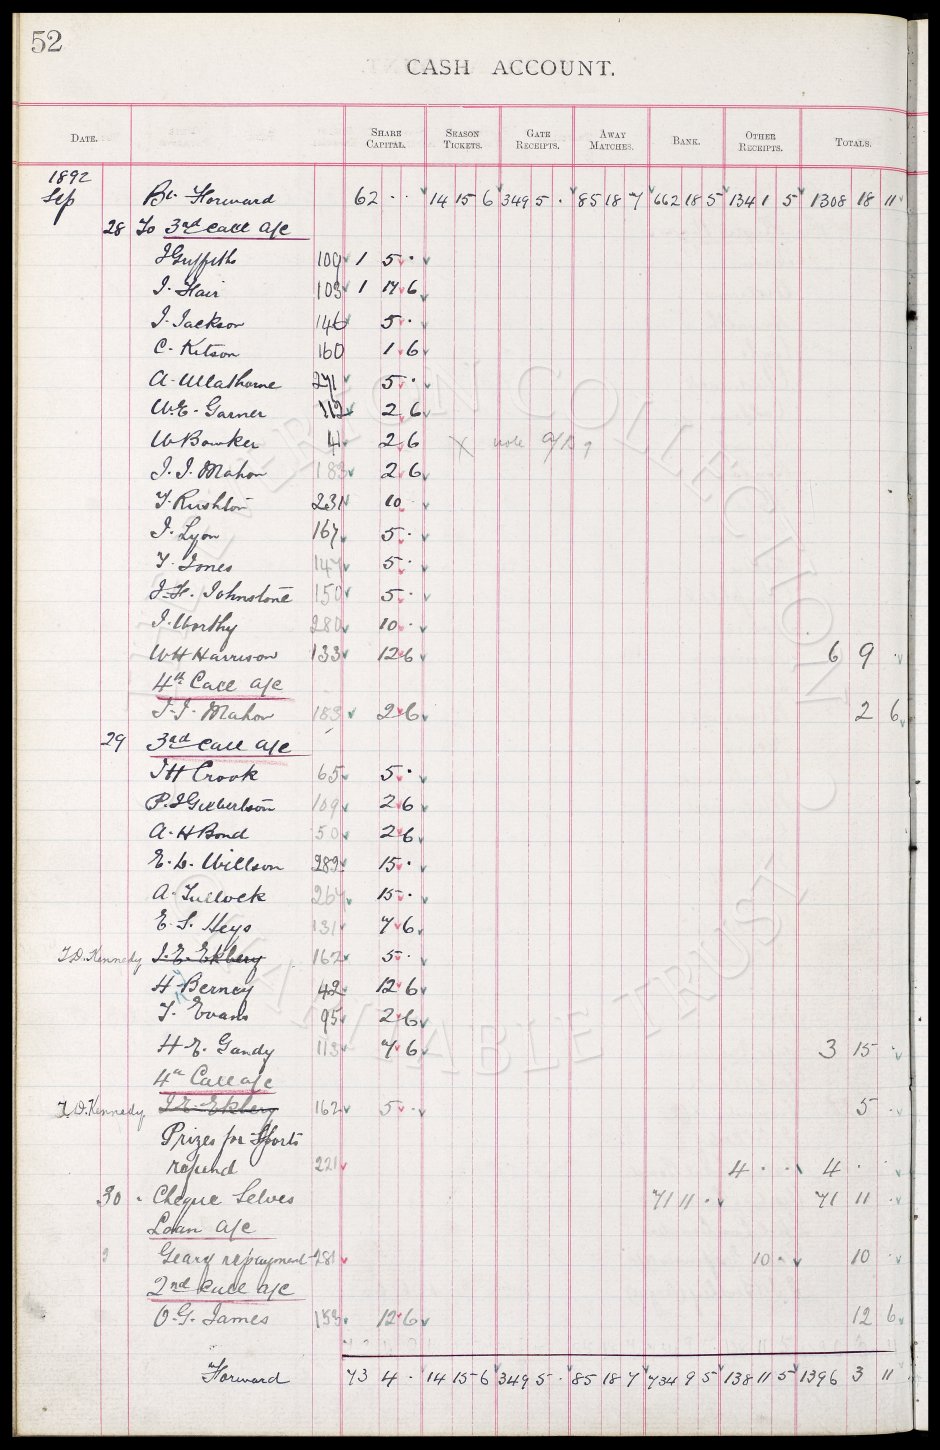 52
CASH ACCOUNT.
DATE. SHARE CAPITAL. SEASON TICKETS. GATE RECEIPTS. AWAY MATCHES. BANK. OTHER RECEIPTS. TOTALS.
1892
Sep Bt. Forward 62 - - 14 15 6 349 5 . 85 18 7 662 18 5 134 1 5 1308 18 11
28 To 3rd Call a/c
J Griffiths 109 1 5 .
J. Hair 103 1 17 6
J. Jackson 146 5 .
C. Kitson 160 1 6
A. Mathorne 271 5 .
W.E. Garner 112 2 6
W Bowker 41 2 6 X note a/c ?
J. J. Mahon 183 2 6
T. Rushton 231 10 .
J. Lyon 167 5 .
T. Jones 147 5 .
J. H. Johnstone 150 5 .
J. Worthy 280 10 .
W H Harrison 133 12 6 6 9 .
4th Call a/c
J. J. Mahon 183 2 6 2 6
29 3rd Call a/c
J H Crook 65 5 .
P. J Gilbertson 109 2 6
A. H Bond 50 2 6
E. L. Willson 282 15 .
A. Tullock 267 15 .
E. S. Heys 131 7 6
T. D. Kennedy J. E. Ekbery 162 5 .
H Berney 42 12 6
T. Evans 95 2 6
H. E. Gandy 113 7 6 3 15 .
4th Call a/c
T. D. Kennedy J E. Ekbery 162 5 . 5 .
Prizes for Sports
refund 221 4 . . 4 . .
30 . Cheque Selves 71 11 . 71 11 .
Loan a/c
Geary repayment 281 10 . 10 .
2nd Call a/c
O. G. James 153 12 6 12 6
Forward 73 4 . 14 15 6 349 5 . 85 18 7 734 9 5 138 11 5 1396 3 11
THE EVERTON COLLECTION
CHARITABLE TRUST